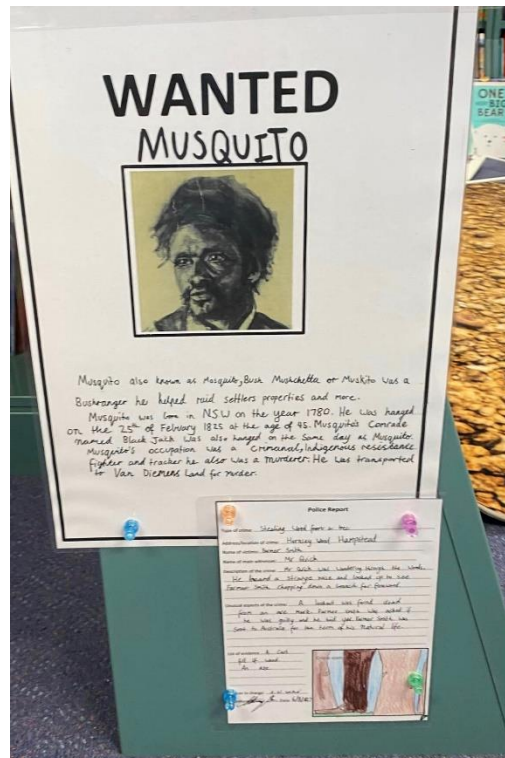 WANTED
MUSQUITO
Musquito also known as Mosquito, Bush Muschetta or Muskito was a
Bushranger he helped raid settlers properties and more.
Musquito was born in NSW on the year 1780. He was hanged
on the 25th of Febriary 1825 at the age of 45. Musquito's Comrade
named Black Jack was also hanged on the same day as Musquito.
Musquito's occupation was a Criminal, Indigenous resistance
fighter and tracker he also was a murderer. He was transported
to Van Diemens Land for murder.
Police Report
Type of crime: Stealing Wood from a tree
Address/location of crime: Hornsey Wood Hampstead
Name of victim: Farmer Smith
Name of main witnesses: Mr
Description of the crime: Mr was wandering through the Woods.
He heard a strange noise and looked up to see
Farmer Smith chopping down a branch for firewood.
Unusual aspects of the crime: A was found
from an axe mark. Farmer Smith was asked if
he was guilty and he said yes. Farmer Smith was
sent to Australia for the term of his natural life.
List of evidence: A Cart
full of wood.
An axe
ONE
BIG
BEAR